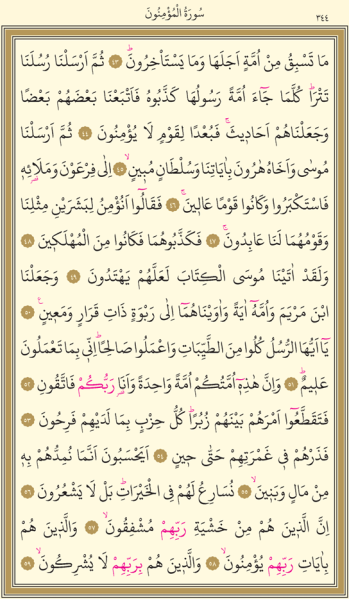 سُورَةُ الْمُؤْمِنُونَ ٣٤٤
مَا تَسْبِقُ مِنْ اُمَّةٍ اَجَلَهَا وَمَا يَسْتَأْخِرُونَۜ ﴿٤٣﴾ ثُمَّ اَرْسَلْنَا رُسُلَنَا
تَتْرَاۜ كُلَّمَا جَٓاءَ اُمَّةً رَسُولُهَا كَذَّبُوهُ فَاَتْبَعْنَا بَعْضَهُمْ بَعْضًا
وَجَعَلْنَاهُمْ اَحَاد۪يثَۚ فَبُعْدًا لِقَوْمٍ لَا يُؤْمِنُونَ ﴿٤٤﴾ ثُمَّ اَرْسَلْنَا
مُوسٰى وَاَخَاهُ هٰرُونَ بِاٰيَاتِنَا وَسُلْطَانٍ مُب۪ينٍۙ ﴿٤٥﴾ اِلٰى فِرْعَوْنَ وَمَلَا۬ئِه۪
فَاسْتَكْبَرُوا وَكَانُوا قَوْمًا عَال۪ينَۚ ﴿٤٦﴾ فَقَالُٓوا اَنُؤْمِنُ لِبَشَرَيْنِ مِثْلِنَا
وَقَوْمُهُمَا لَنَا عَابِدُونَۚ ﴿٤٧﴾ فَكَذَّبُوهُمَا فَكَانُوا مِنَ الْمُهْلَك۪ينَ ﴿٤٨﴾
وَلَقَدْ اٰتَيْنَا مُوسَى الْكِتَابَ لَعَلَّهُمْ يَهْتَدُونَ ﴿٤٩﴾ وَجَعَلْنَا
ابْنَ مَرْيَمَ وَاُمَّهُٓ اٰيَةً وَاٰوَيْنَاهُمَٓا اِلٰى رَبْوَةٍ ذَاتِ قَرَارٍ وَمَع۪ينٍ۟ ﴿٥٠﴾
يَٓا اَيُّهَا الرُّسُلُ كُلُوا مِنَ الطَّيِّبَاتِ وَاعْمَلُوا صَالِحًاۜ اِنّ۪ي بِمَا تَعْمَلُونَ
عَل۪يمٌۜ ﴿٥١﴾ وَاِنَّ هٰذِه۪ٓ اُمَّتُكُمْ اُمَّةً وَاحِدَةً وَاَنَا۬ رَبُّكُمْ فَاتَّقُونِ ﴿٥٢﴾
فَتَقَطَّعُٓوا اَمْرَهُمْ بَيْنَهُمْ زُبُرًاۜ كُلُّ حِزْبٍ بِمَا لَدَيْهِمْ فَرِحُونَ ﴿٥٣﴾
فَذَرْهُمْ ف۪ي غَمْرَتِهِمْ حَتّٰى ح۪ينٍ ﴿٥٤﴾ اَيَحْسَبُونَ اَنَّمَا نُمِدُّهُمْ بِه۪
مِنْ مَالٍ وَبَن۪ينَۙ ﴿٥٥﴾ نُسَارِعُ لَهُمْ فِي الْخَيْرَاتِۜ بَلْ لَا يَشْعُرُونَ ﴿٥٦﴾
اِنَّ الَّذ۪ينَ هُمْ مِنْ خَشْيَةِ رَبِّهِمْ مُشْفِقُونَۙ ﴿٥٧﴾ وَالَّذ۪ينَ هُمْ
بِاٰيَاتِ رَبِّهِمْ يُؤْمِنُونَۙ ﴿٥٨﴾ وَالَّذ۪ينَ هُمْ بِرَبِّهِمْ لَا يُشْرِكُونَۙ ﴿٥٩﴾